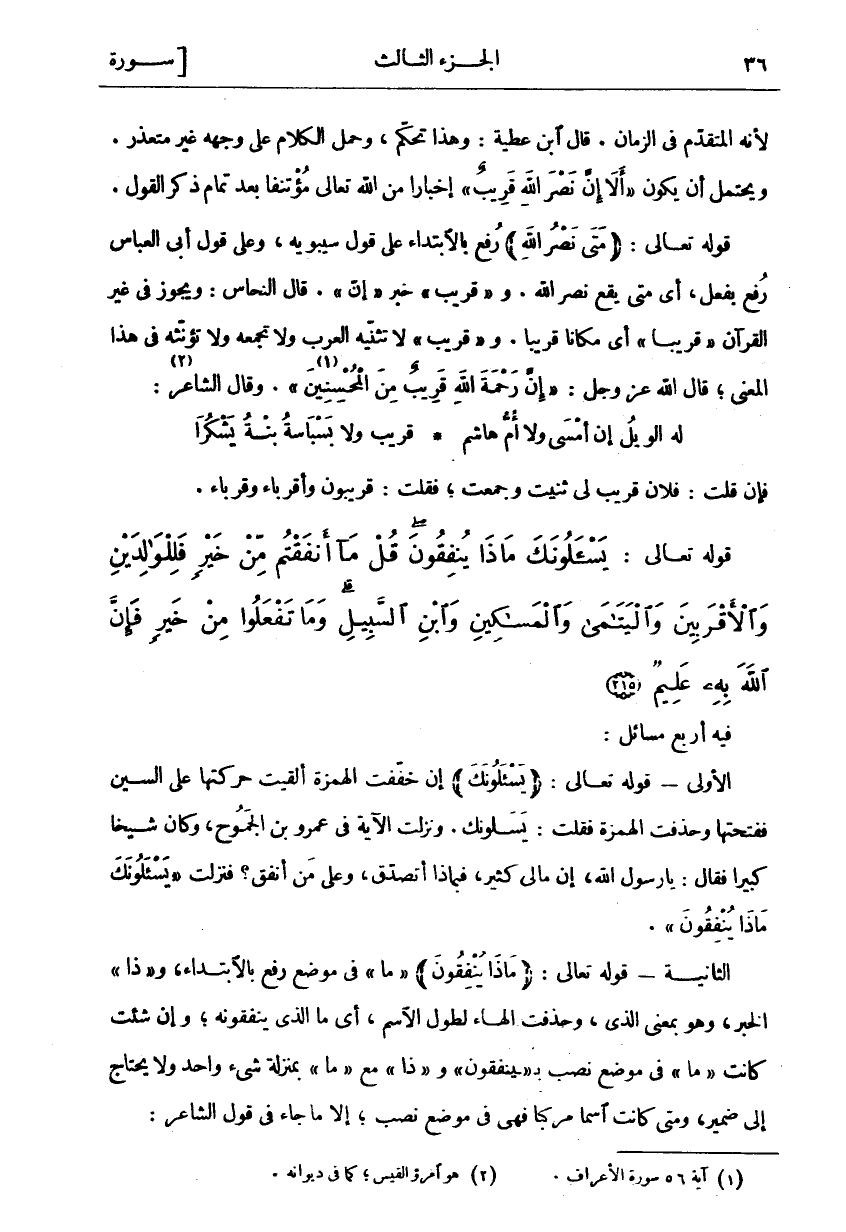 ٣٦ الجـــزء الثـالث [ســــورة
لأنه المتقدّم فى الزمان . قال ٱبن عطية : وهذا تحكّم ، وحمل الكلام على وجهه غير متعذر .
ويحتمل أن يكون «أَلَا إِنَّ نَصْرَ اللهِ قَرِيبٌ» إخبارا من الله تعالى مُؤْتنفا بعد تمام ذكر القول .
قوله تعـالى : ﴿ مَتَى نَصْرُ اللهِ ﴾ رُفع بالٱبتداء على قول سيبويه ، وعلى قول أبى العباس
رُفع بفعل، أى متى يقع نصر الله . و « قريب» خبر «إنّ » . قال النحاس : ويجوز فى غير
القرآن « قريبـا » أى مكانا قريبا . و « قريب » لا تثنّيه العرب ولا تجمعه ولا تؤنّثه فى هذا
المعنى ؛ قال الله عز وجل : « إِنَّ رَحْمَةَ اللهِ قَرِيبٌ مِنَ الْمُحْسِنِينَ (١) » . وقال الشاعر (٢) :
له الويلُ إن أَمْسَى ولا أُمُّ هاشم * قريب ولا بَسْبَاسةُ بنـةُ يَشْكُرَا
فإن قلت : فلان قريب لى ثنيت وجمعت ؛ فقلت : قريبون وأقرباء وقرباء .
قوله تعـالى : يَسْـَٔلُونَكَ مَاذَا يُنفِقُونَۖ قُلْ مَآ أَنفَقْتُم مِّنْ خَيْرٍ فَلِلْوَٰلِدَيْنِ
وَٱلْأَقْرَبِينَ وَٱلْيَتَٰمَىٰ وَٱلْمَسَٰكِينِ وَٱبْنِ ٱلسَّبِيلِۗ وَمَا تَفْعَلُوا مِنْ خَيْرٍ فَإِنَّ
ٱللَّهَ بِهِۦ عَلِيمٌ ﴿٢١٥﴾
فيه أربع مسائل :
الأولى – قوله تعـالى : ﴿ يَسْئَلُونَكَ ﴾ إن خفّفت الهمزة ألقيت حركتها على السين
ففتحتها وحذفت الهمزة فقلت : يَسَـلونك . ونزلت الآية فى عمرو بن الجَمُوح، وكان شـيخا
كبيرا فقال : يارسول الله، إن مالى كثير، فبماذا أتصدّق، وعلى مَن أنفق؟ فنزلت «يَسْئَلُونَكَ
مَاذَا يُنْفِقُونَ» .
الثانيــة – قوله تعالى : ﴿ مَاذَا يُنْفِقُونَ ﴾ « ما » فى موضع رفع بالٱبتـداء، و« ذا »
الخبر، وهو بمعنى الذى ، وحذفت الهـاء لطول الٱسم ، أى ما الذى ينفقونه ؛ وإن شئت
كانت « ما » فى موضع نصب بـ«ـينفقون» و « ذا » مع « ما » بمنزلة شىء واحد ولا يحتاج
إلى ضمير، ومتى كانت ٱسما مركبا فهى فى موضع نصب ؛ إلا ما جاء فى قول الشاعر :
(١) آية ٥٦ سورة الأعراف . (٢) هو ٱمرؤ القيس ؛ كما فى ديوانه .